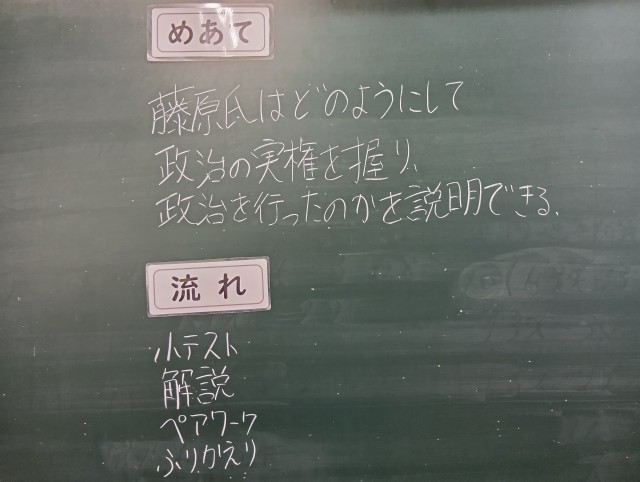 めあて
藤原氏はどのようにして
政治の実権を握り、
政治を行ったのかを説明できる。
流れ
小テスト
解説
ペアワーク
ふりかえり